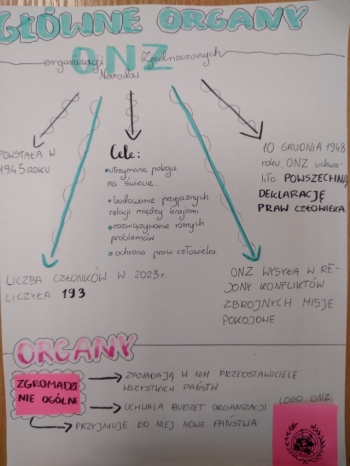 GŁÓWNE ORGANY
ONZ
organizacji Zjednoczonych
Narodów
POWSTAŁA W
1945 ROKU
Cele:
• utrzymanie pokoju
na świecie
• budowanie przyjaznych
relacji między krajami
• rozwiązywanie różnych
problemów
• ochrona praw człowieka
10 GRUDNIA 1948
roku ONZ uchwa-
liło POWSZECHNĄ
DEKLARACJĘ
PRAW CZŁOWIEKA
LICZBA CZŁONKÓW W 2023 r.
LICZYŁA 193
ONZ WYSYŁA W RE-
JONY KONFLIKTÓW
ZBROJNYCH MISJE
POKOJOWE
ORGANY
ZGROMADZE
NIE OGÓLNE
ZASIADAJĄ W NIM PRZEDSTAWICIELE
WSZYSTKICH PAŃSTW
UCHWALA BUDŻET ORGANIZACJI
PRZYJMUJE DO NIEJ NOWE PAŃSTWA
LOGO ONZ